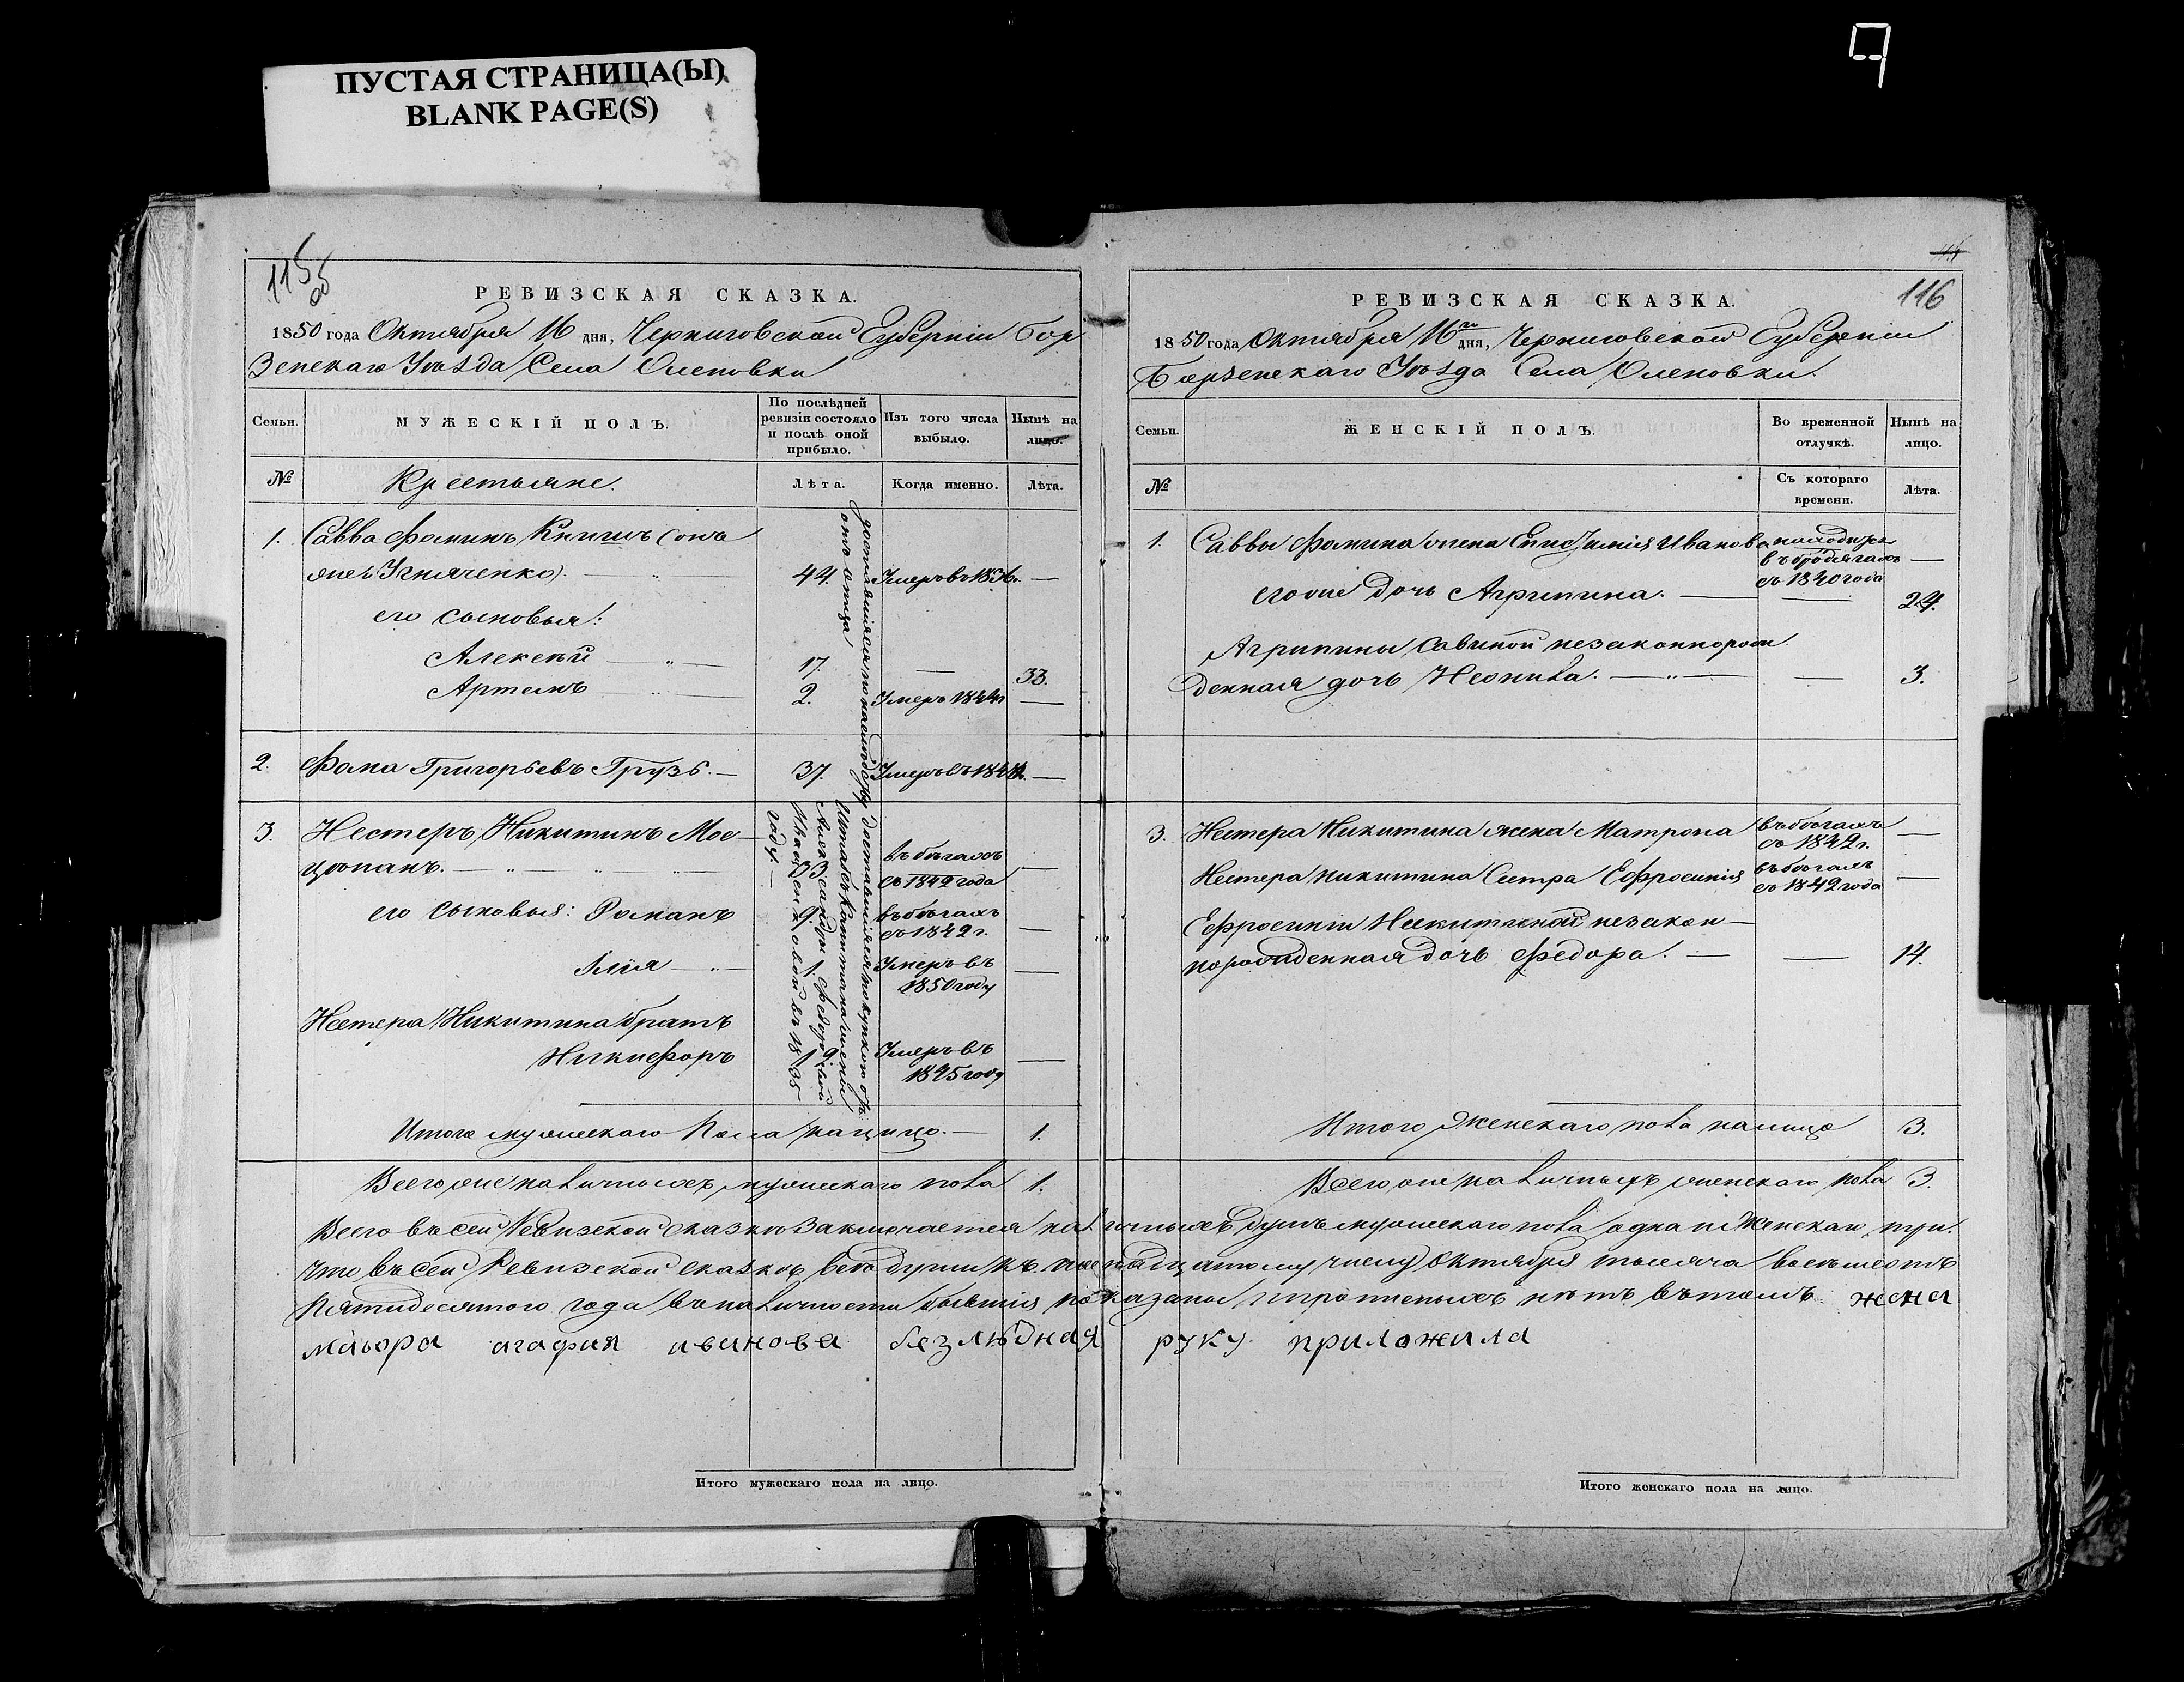 ПУСТАЯ СТРАНИЦА(Ы)
BLANK PAGE(S)
115
об
РЕВИЗСКАЯ СКАЗКА.
1850 года Октября 16 дня, Черниговской Губерніи Бор
Зенскаго Уѣзда Села Оленовки
Семьи.
МУЖЕСКІЙ ПОЛЪ.
По послѣдней
ревизіи состояло
и послѣ оной
прибыло.
Изъ того числа
выбыло.
Нынѣ на
лицо.
№
Крестьяне.
Лѣта.
Когда именно.
Лѣта.
1. Савва Фоминъ Книшъ (онъ
же Игначенко). 44. Умеръ въ 1836г. —
его сыновья:
Алексѣй 17. — 33.
Артемъ 2. Умеръ 1844г —
доставшіяся по наслѣдству
отъ отца
2. Фома Григорьевъ Грузь. — 37. Умеръ въ —
3. Нестеръ Никитинъ Мос—
цѣпанъ. 33 въ бѣгахъ
съ 1842 года —
его сыновья: Романъ 9. въ бѣгахъ
съ 1842 г. —
Илія 1. Умеръ въ
1850 году —
Нестера Никитина братъ
Никифоръ 19 Умеръ въ
1845 году —
доставшіяся по купчей отъ
Штабсъ Капитана жены
Александры Федоровой
въ 1835
году. —
Итого мужескаго Пола на лицо. — 1.
Всего же наличныхъ мужескаго пола 1.
114
116
РЕВИЗСКАЯ СКАЗКА.
1850 года Октября 16го дня, Черниговской Губерніи
Борзенскаго Уѣзда Села Оленовки.
Семьи.
ЖЕНСКІЙ ПОЛЪ.
Во временной
отлучкѣ.
Нынѣ на
лицо.
№
Съ котораго
времени.
Лѣта.
1. Саввы Фомина жена Епистимія Иванова находится
въ бродягахъ
съ 1840 года —
его же дочь Агрипина. — — 24.
Агрипины Савиной незаконнорож
денная дочь Неонила. — — 3.
3. Нестера Никитина жена Матрона въ бѣгахъ
съ 1842 г. —
Нестера Никитина Сестра Ефросинія въ бѣгахъ
съ 1842 года —
Ефросиніи Никитиной незакон—
норожденная дочь Федора. — — 14.
Итого Женскаго пола на лицо 3.
Всего же наличныхъ женскаго пола 3.
Всего въ сей Ревизской сказкѣ заключается наличныхъ душъ мужескаго пола одна и Женскаго три.
Что въ сей Ревизской сказкѣ всѣ души къ шестнадцатому числу Октября тысяча восемьсотъ
Пятидесятого года въ наличности бывшія показаны и прописныхъ нѣтъ въ томъ жена
маіора агафия иванова безлюдная руку приложила
Итого мужескаго пола на лицо.
Итого женскаго пола на лицо.